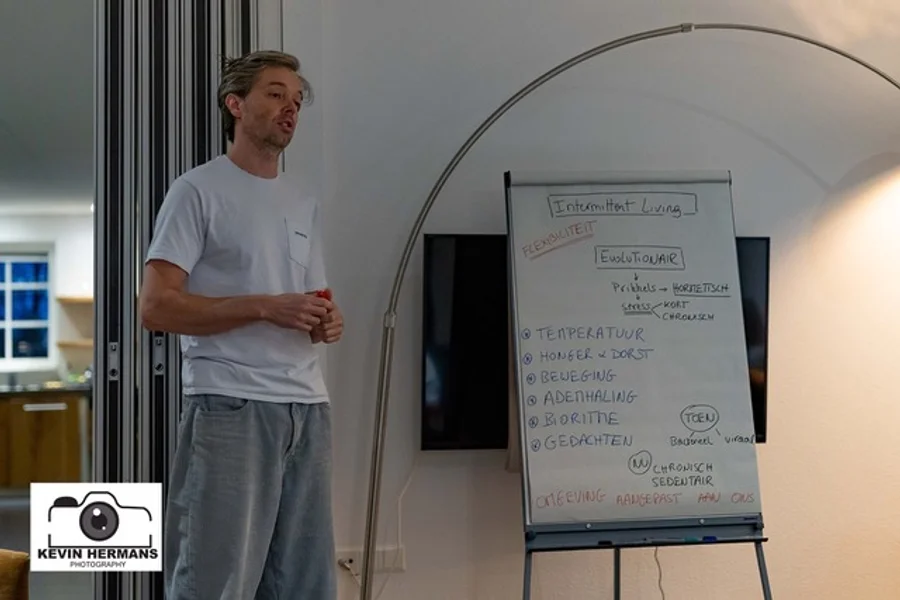 Intermittent Living
FLEXIBILITEIT
EVOLUTIONAIR
Prikkels → HORMETISCH
STRESS
KORT
CHRONISCH
TEMPERATUUR
HONGER & DORST
BEWEGING
ADEMHALING
BIORITME
GEDACHTEN
TOEN
Bacterieel
viraal
NU
CHRONISCH
SEDENTAIR
OMGEVING AANGEPAST AAN ONS
KEVIN HERMANS
PHOTOGRAPHY